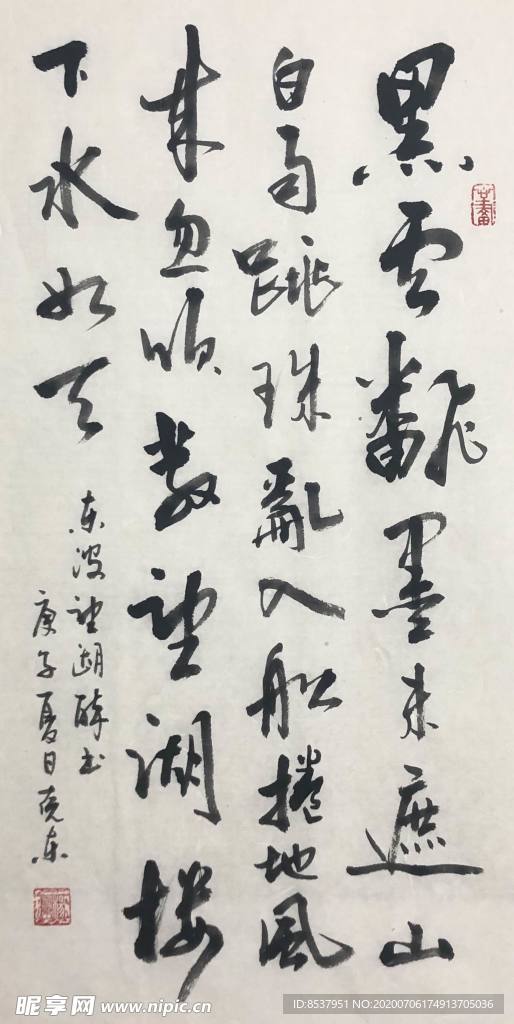 黑雲飜墨未遮山
白雨跳珠亂入船捲地風
來忽吹散望湖樓
下水如天
東坡望湖醉书
庚子夏日克東
昵享网 www.nipic.cn
ID:8537951 NO:20200706174913705036